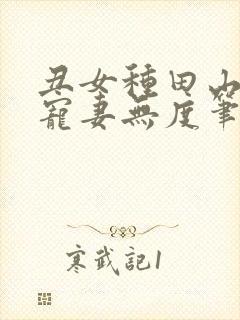 丑女種田山
寵妻無度筆
寒武記1